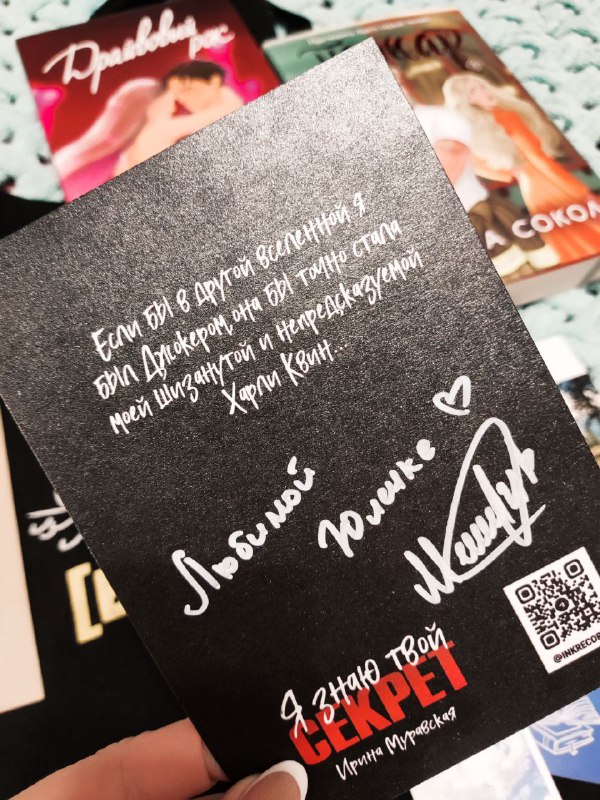 Драйвовый рок
А СОКОЛ
Если бы в другой вселенной я
был Джокером, она бы точно стала
моей шизанутой и непредсказуемой
Харли Квин...
Любимой
Юленьке
@INKRECOR
Я знаю твой
СЕКРЕТ
Ирина Муравская